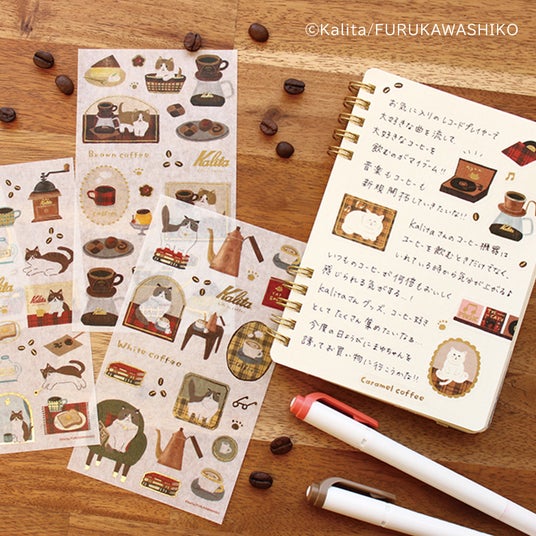 ©Kalita/FURUKAWASHIKO
Brown coffee
Kalita
Kalita
White coffee
Kalita
お気に入りのレコードプレイヤーで
大好きな曲を流して
大好きなコーヒーを
飲むのがマイブーム!!
音楽もコーヒーも
新規開拓していきたいな!!
Kalitaさんのコーヒー機器は
コーヒーを飲むときだけでなく、
いれている時から気分が上がるな
いつものコーヒーが何倍もおいしく
感じられる気がする…!
Kalitaさんグッズ、コーヒー好き
としてたくさん集めたいなぁ…
今度の日ようびにまゆちゃんを
誘ってお買い物に行こうかな!!
Caramel coffee